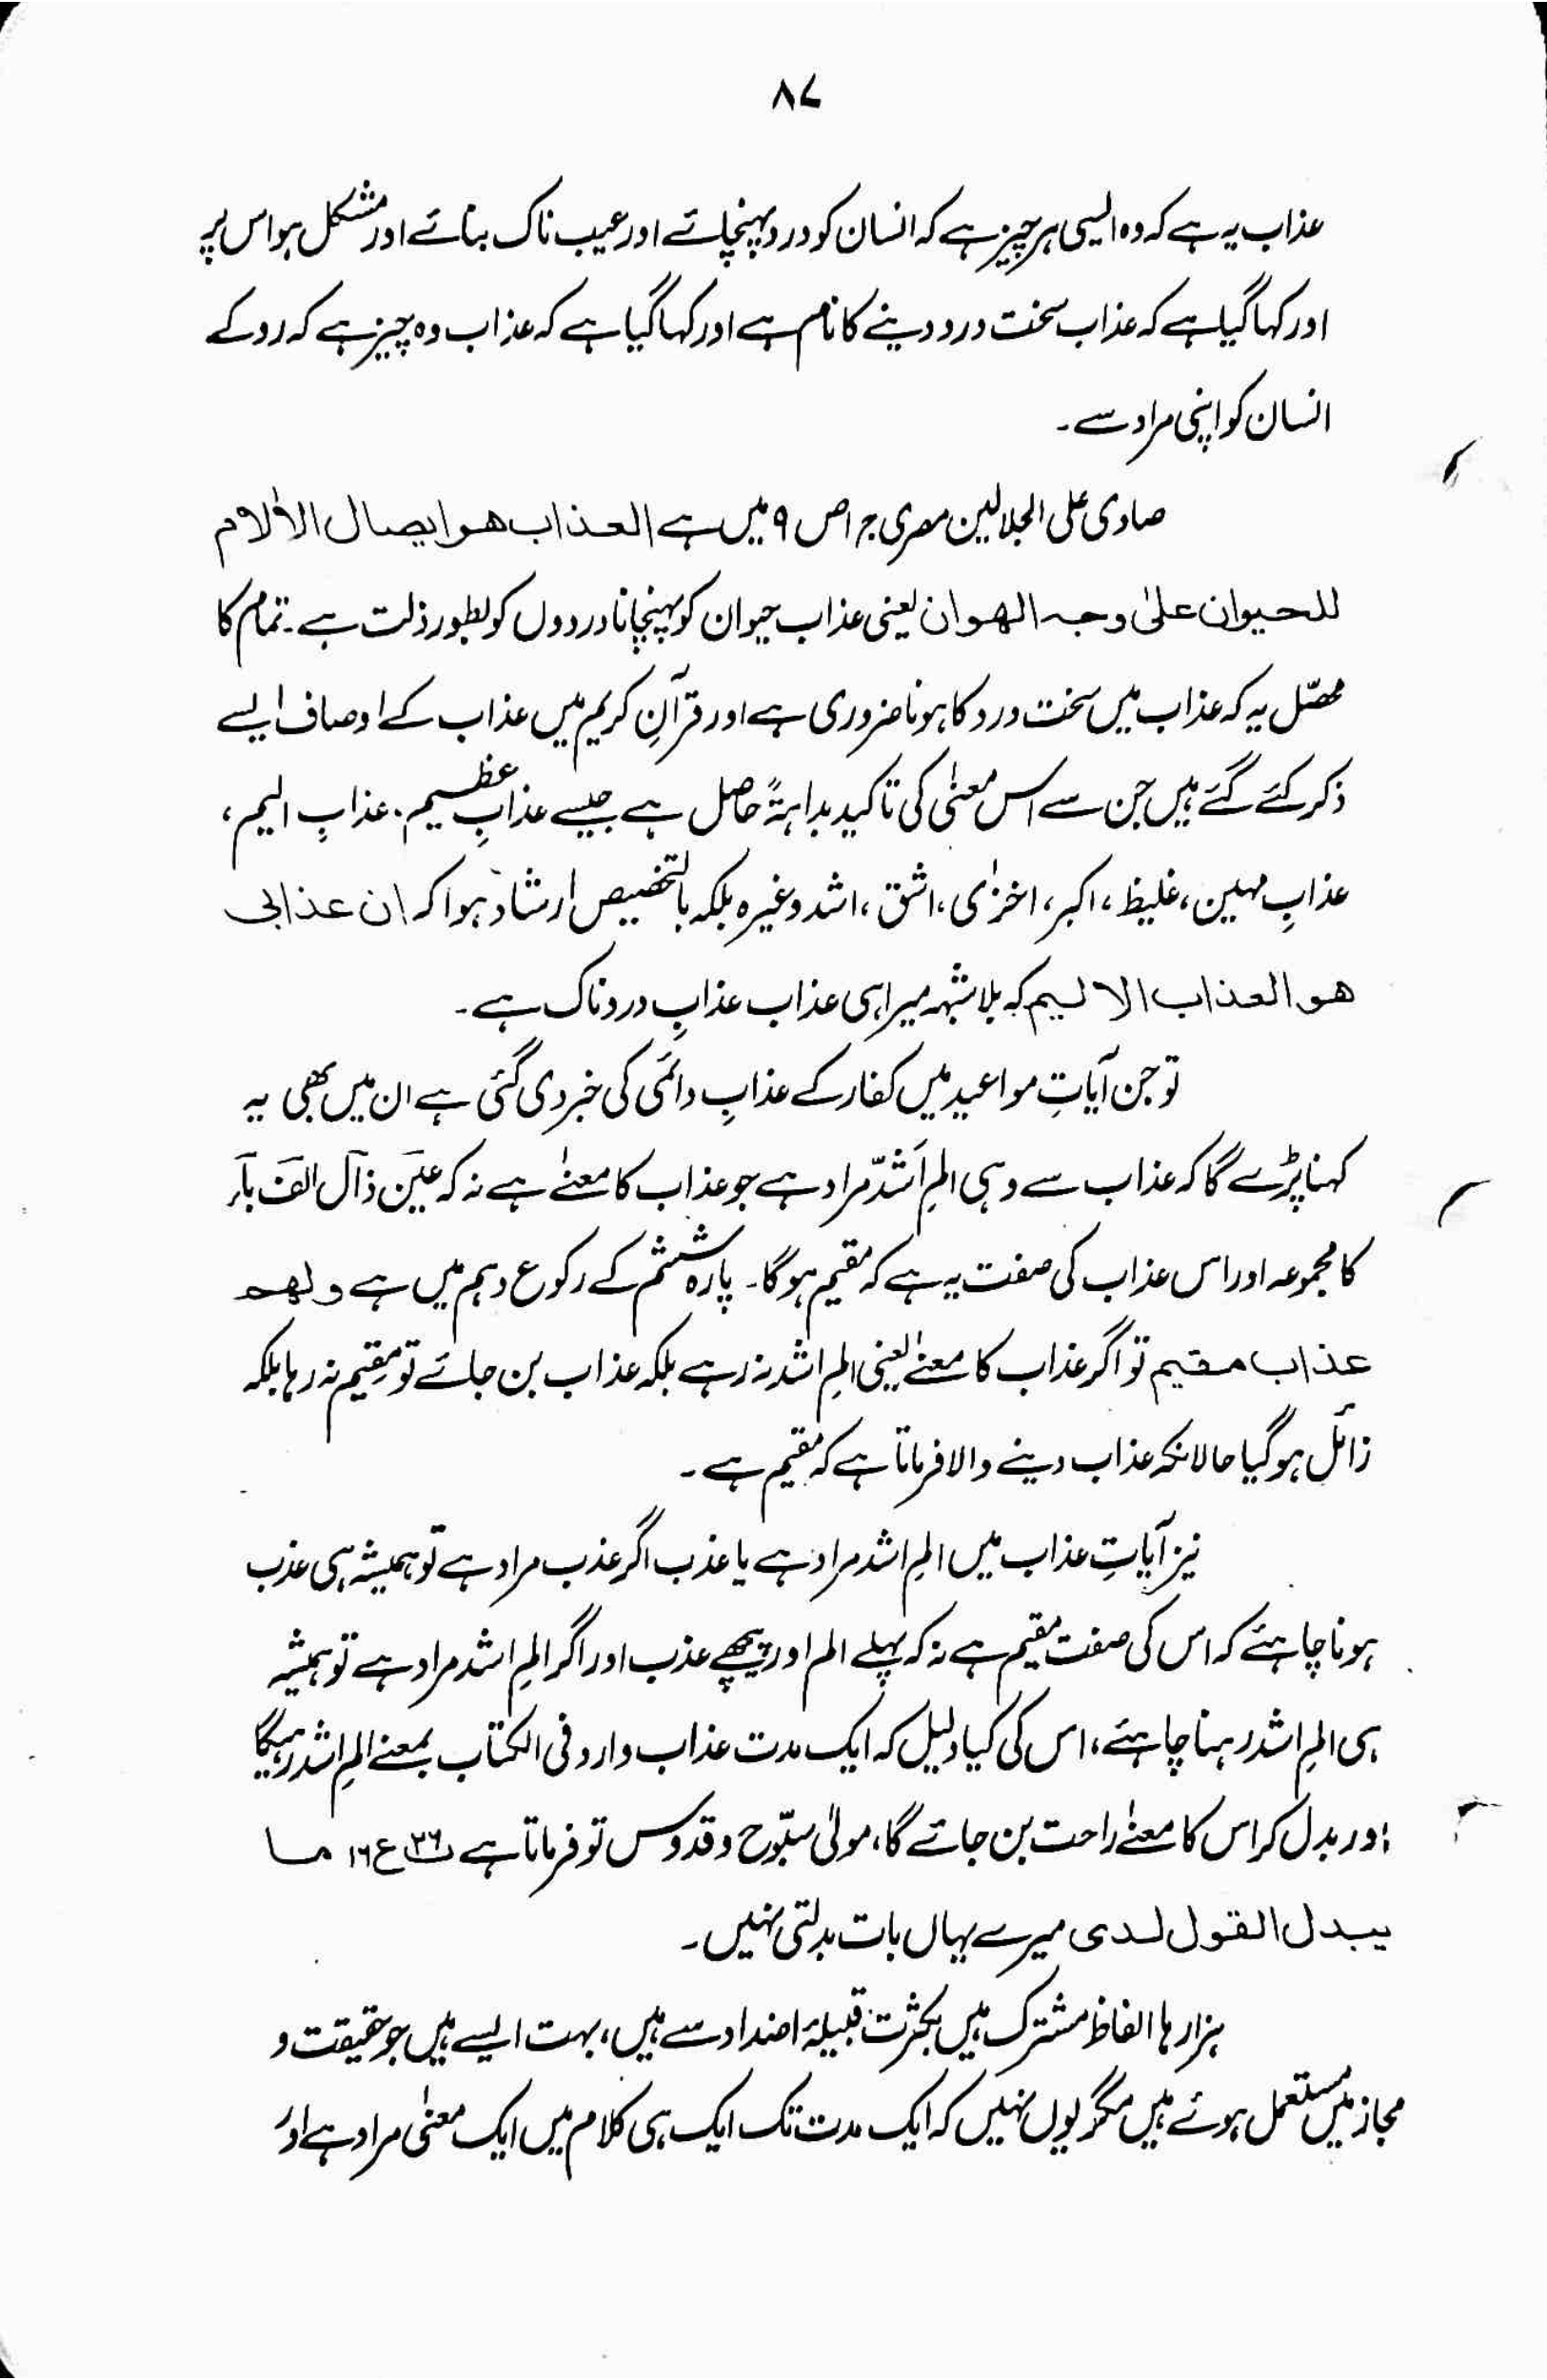 ۸۷
عذاب یہ ہے کہ وہ ایسی ہر چیز ہے کہ انسان کو درد پہنچائے اور عیب ناک بنائے اور مشکل ہو اس پر
اور کہا گیا ہے کہ عذاب سخت درد دینے کا نام ہے اور کہا گیا ہے کہ عذاب وہ چیز ہے کہ روکے
انسان کو اپنی مراد سے۔
صاوی علی الجلالین مصری ج ۱ ص ۹ میں ہے العذاب هو ایصال الاٰلام
للحیوان علیٰ وجه الهوان یعنی عذاب حیوان کو پہنچانا دردوں کو بطور ذلت ہے۔ تمام کا
محصّل یہ کہ عذاب میں سخت درد کا ہونا ضروری ہے اور قرآنِ کریم میں عذاب کے اوصاف ایسے
ذکر کئے گئے ہیں جن سے اس معنٰی کی تاکید بداہۃً حاصل ہے جیسے عذابِ عظیم۔ عذابِ الیم،
عذابِ مہین، غلیظ، اکبر، اخزٰی، اشق، اشد وغیرہ بلکہ بالتخصیص ارشاد ہوا کہ ان عذابی
هو العذاب الالیم کہ بلاشبہ میرا ہی عذاب عذابِ دردناک ہے۔
تو جن آیاتِ مواعید میں کفار کے عذابِ دائمی کی خبر دی گئی ہے ان میں بھی یہ
کہنا پڑے گا کہ عذاب سے وہی المِ اَشدّ مراد ہے جو عذاب کا معنےٰ ہے نہ کہ عین ذآل الف بآء
کا مجموعہ اور اس عذاب کی صفت یہ ہے کہ مقیم ہوگا۔ پارہ ششم کے رکوع دہم میں ہے ولهم
عذاب مقیم تو اگر عذاب کا معنےٰ یعنی المِ اشد نہ رہے بلکہ عذاب بن جائے تو مقیم نہ رہا بلکہ
زائل ہوگیا حالانکہ عذاب دینے والا فرماتا ہے کہ مقیم ہے۔
نیز آیاتِ عذاب میں المِ اشد مراد ہے یا عذب اگر عذب مراد ہے تو ہمیشہ ہی عذب
ہونا چاہئے کہ اس کی صفت مقیم ہے نہ کہ پہلے الم اور پیچھے عذب اور اگر المِ اشد مراد ہے تو ہمیشہ
ہی المِ اشد رہنا چاہئے، اس کی کیا دلیل کہ ایک مدت عذاب وارد فی الکتاب بمعنے المِ اشد رہیگا
اور بدل کر اس کا معنےٰ راحت بن جائے گا، مولیٰ سبّوح و قدوس تو فرماتا ہے پ۲۶ ع۱۶ ما
یبدل القول لدی میرے یہاں بات بدلتی نہیں۔
ہزارہا الفاظ مشترک ہیں بکثرت قبیلۂ اضداد سے ہیں، بہت ایسے ہیں جو حقیقت و
مجاز میں مستعمل ہوئے ہیں مگر یوں نہیں کہ ایک مدت تک ایک ہی کلام میں ایک معنٰی مراد ہے اور